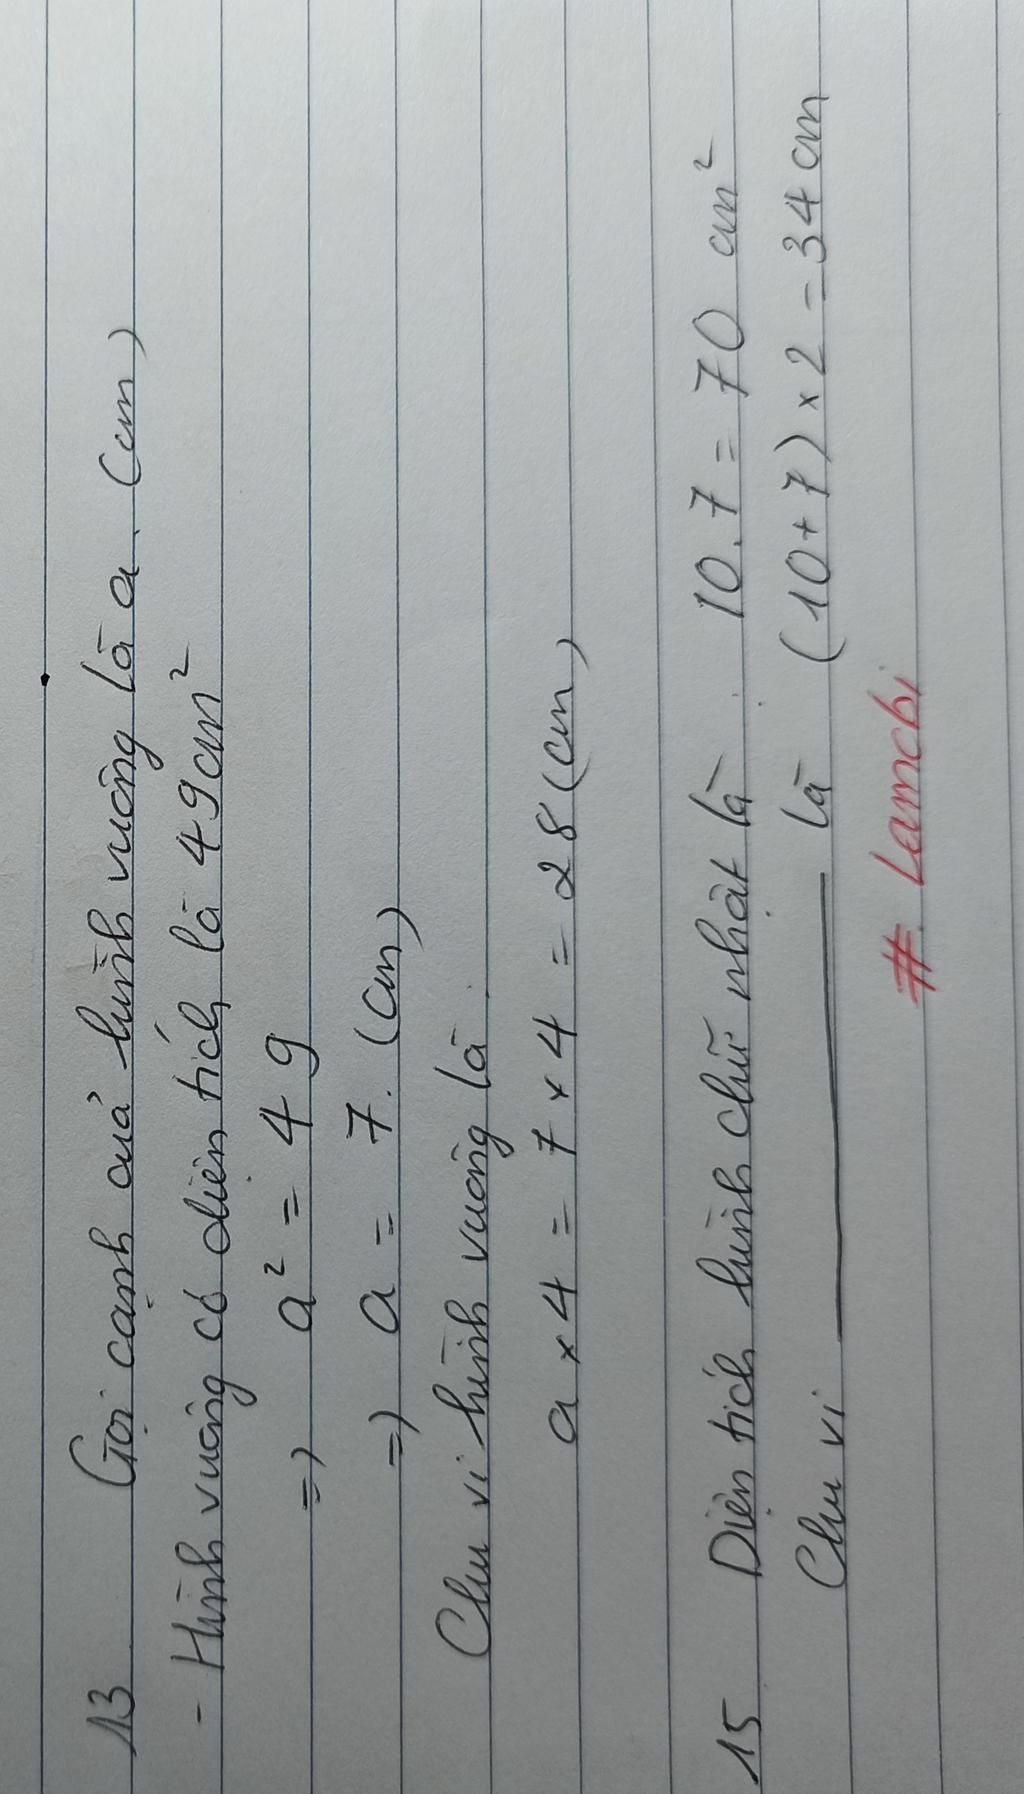 13 Gọi cạnh cuả hình vuông là a. (cm)
- Hình vuông có diện tích là 49cm²
=) a² = 49
=) a = 7. (cm)
Chu vi hình vuông là
a × 4 = 7 × 4 = 28 (cm)
15 Diện tích hình chữ nhật là 10.7 = 70 cm²
Chu vi ——— là (10+7) × 2 = 34 cm
# Lamchi